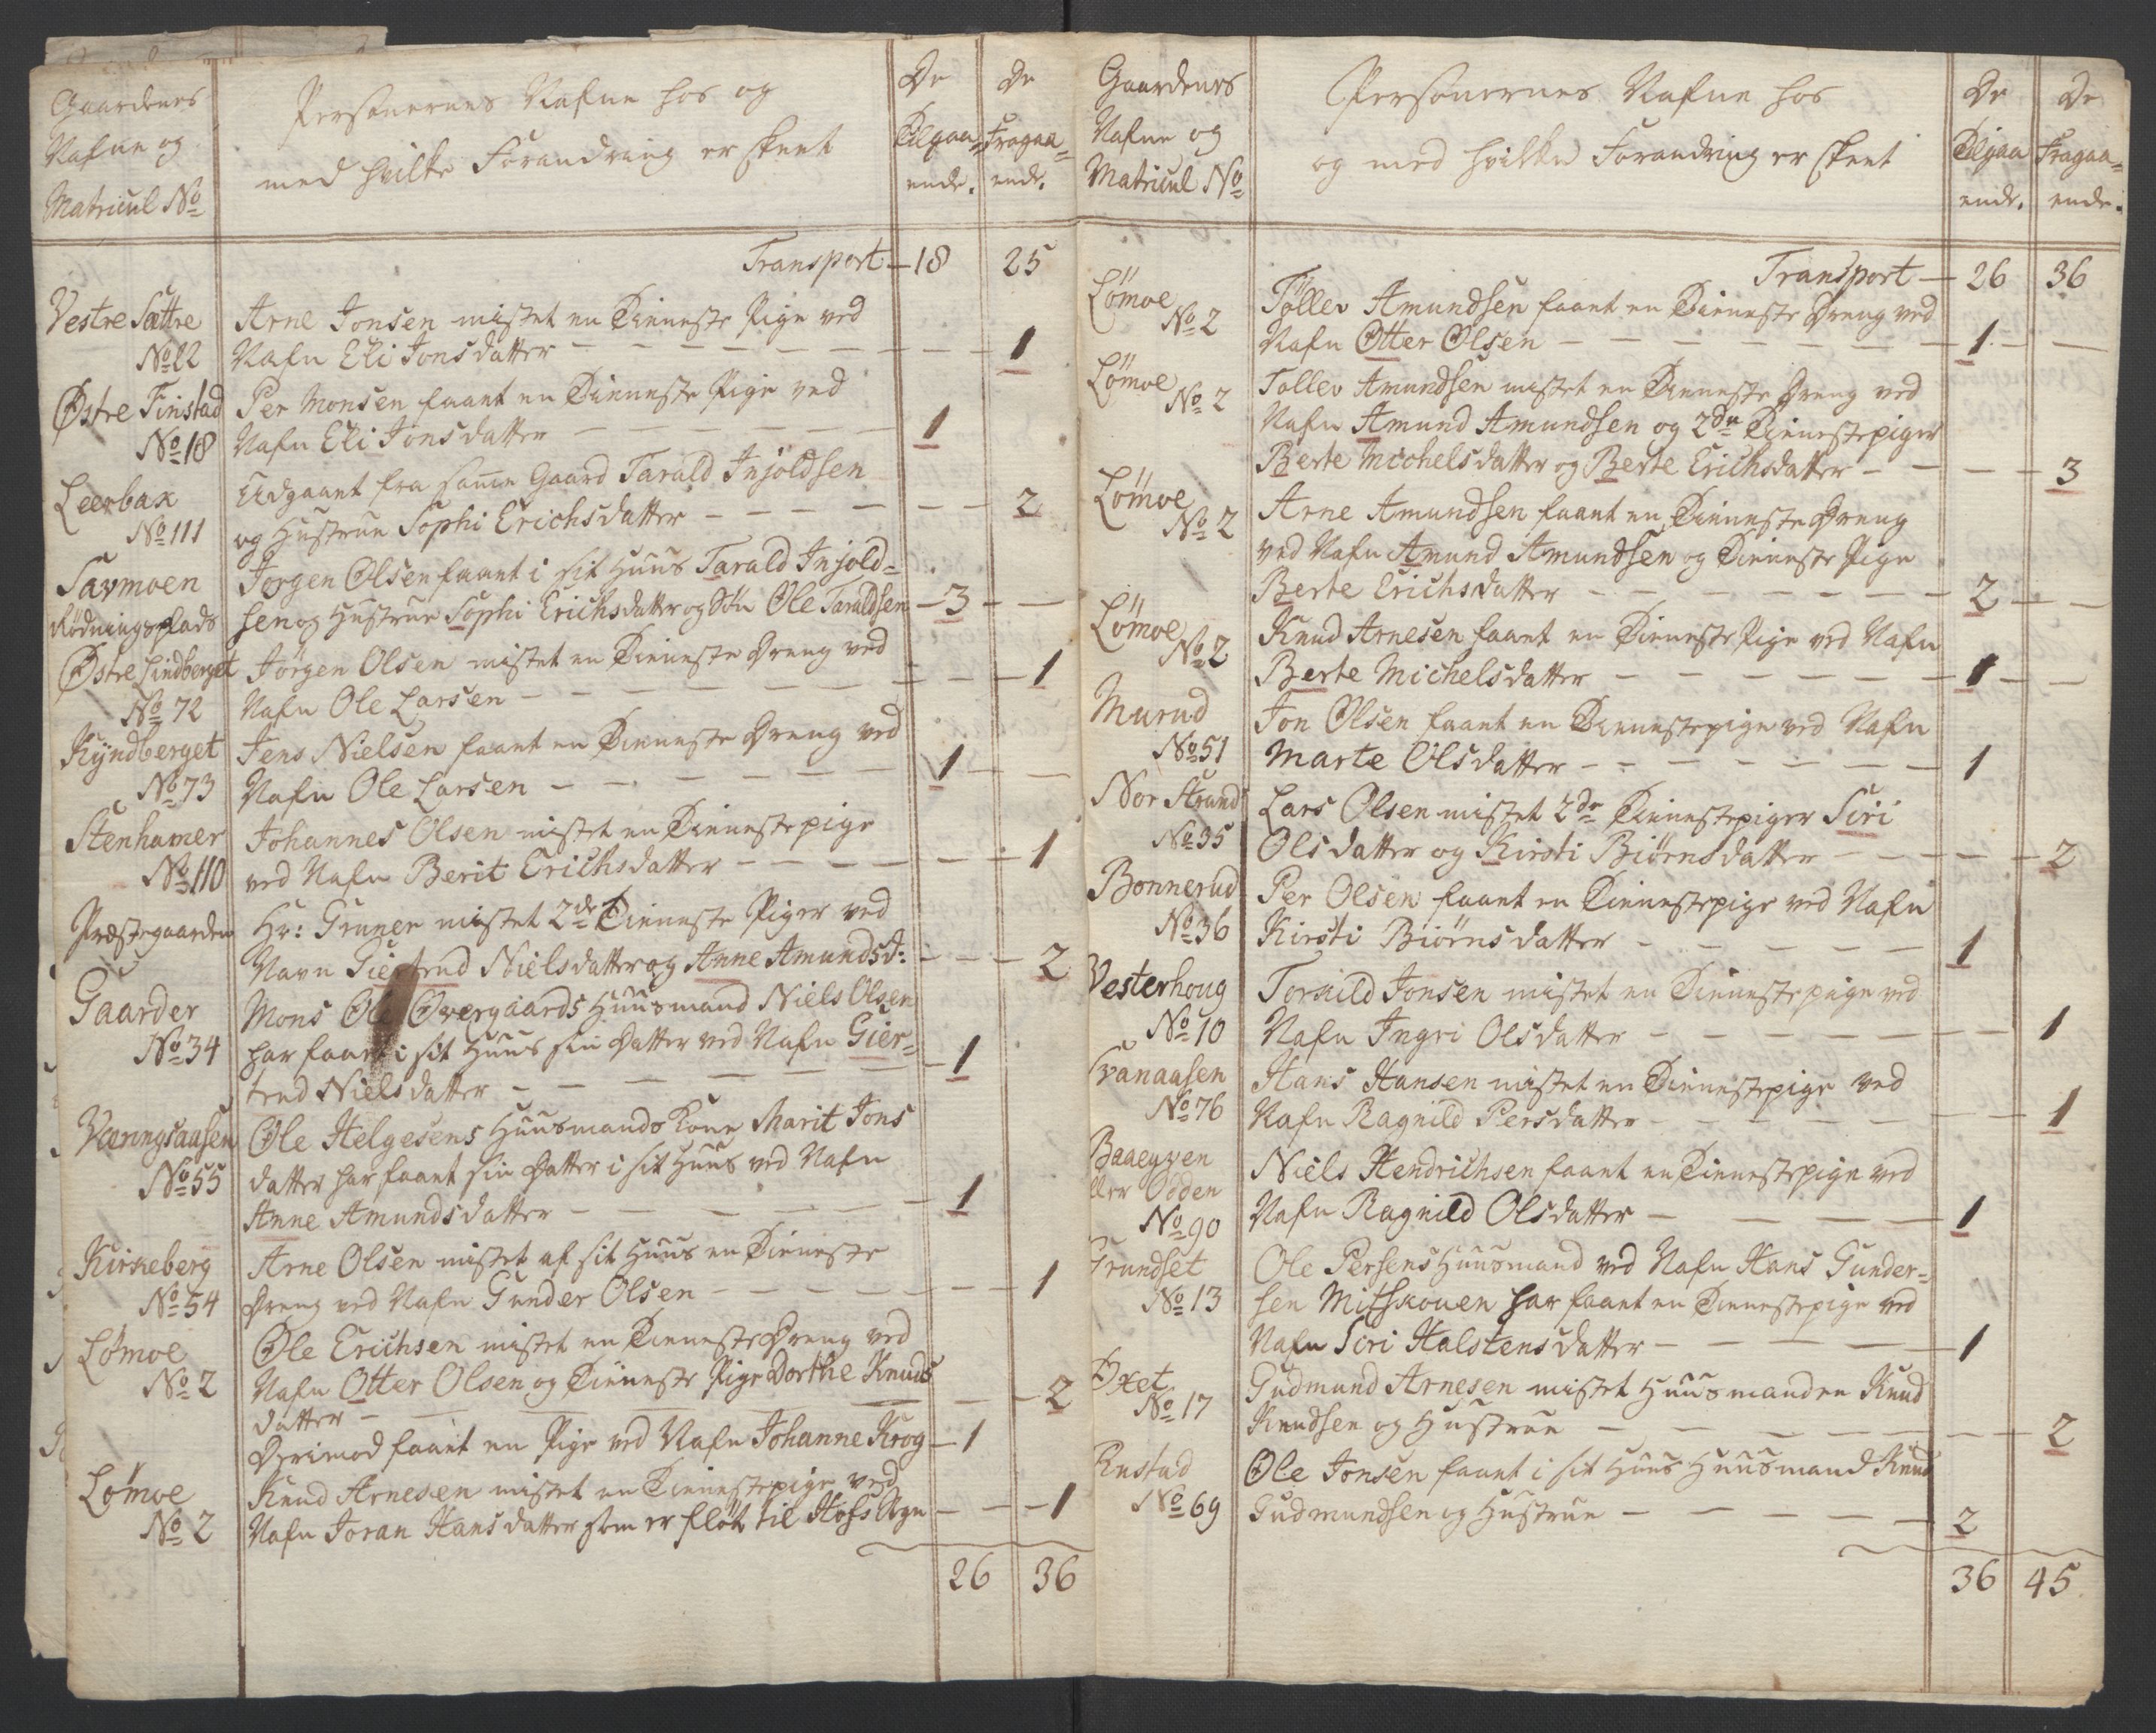 Gaardenes
Nafne og
Matricul No
Personernes Nafne hos og
med hvilke Forandring er skeet
De
Tilgaa-
ende.
De
Fragaa-
ende.
Transport - 18 25
Vestre Sættre Arne Jonsen mistet en Tieneste Pige ved
No 22 Nafn Eli Jonsdatter - - - 1
Østre Finstad Per Monsen faaet en Tieneste Pige ved
No 18 Nafn Eli Jonsdatter - - - 1
Leerbax Udgaaet fra samme Gaard Tarald Injoldsen
No 111 og Hustrue Sophi Erichsdatter - - - 2
Savmoen Jørgen Olsen faaet i sit Huus Tarald Injold-
Rødningsplads sen og Hustrue Sophi Erichsdatter og Søn Ole Taraldsen - 3 -
Østre Lindberget Jørgen Olsen mistet en Tieneste Dreng ved
No 72 Nafn Ole Larsen - - - 1
Kyndberget Jens Nielsen faaet en Tieneste Dreng ved
No 73 Nafn Ole Larsen - - - 1
Stenhamer Johannes Olsen mistet en Tienestepige
No 110 ved Nafn Berit Erichsdatter - - - 1
Præstegaarden Hr: Gruner mistet 2de Tieneste Piger ved
Navn Giertrud Nielsdatter og Anne Amundsd: - - - 2
Gaarder Mons Ole Overgaards Huusmand Niels Olsen
No 34 har faaet i sit Huus sin Datter ved Nafn Gier-
trud Nielsdatter - - - 1
Væringsaasen Ole Helgesens Huusmands Kone Marit Jons
No 55 datter har faaet sin Datter i sit Huus ved Nafn
Anne Amundsdatter - - - 1
Kirkeberg Arne Olsen mistet af sit Huus en Tieneste
No 54 Dreng ved Nafn Gunder Olsen - - - 1
Lømoe Ole Erichsen mistet en Tieneste Dreng ved
No 2 Nafn Otter Olsen og Tieneste Pige Dorthe Knuds
datter - - - 2
Derimod faaet en Pige ved Nafn Johanne Krog - 1
Lømoe Knud Arnesen mistet en Tienestepige ved
No 2 Nafn Joran Hansdatter som er fløt til Hofs Sogn - - - 1
26 36
Gaardenes
Nafne og
Matricul No
Personernes Nafne hos
og med hvilken Forandring er skeet
De
Tilgaa
ende.
De
Fragaa-
ende.
Transport - 26 36
Lømoe Tøllev Amundsen faaet en Tieneste Dreng ved
No 2 Nafn Otter Olsen - - - 1 - -
Lømoe Tollev Amundsen mistet en Tieneste Dreng ved
No 2 Nafn Amund Amundsen og 2de Tienestepiger
Berte Michelsdatter og Berte Erichsdatter - - - 3
Lømoe Arne Amundsen faaet en Tieneste Dreng
No 2 ved Nafn Amund Amundsen og Tieneste Pige
Berte Erichsdatter - - - 2 - -
Lømoe Knud Arnesen faaet en Tieneste Pige ved Nafn
No 2 Berte Michelsdatter - - - 1 - -
Murud Jon Olsen faaet en Tienestepige ved Nafn
No 51 Marte Olsdatter - - - 1
Nor Strand Lars Olsen mistet 2de Tienestepiger Siri
No 35 Olsdatter og Kirsti Biørnsdatter - - - 2
Bonnerud Per Olsen faaet en Tienestepige ved Nafn
No 36 Kirsti Biørnsdatter - - - 1
Vesterhoug Torkild Jonsen mistet en Tienestepige ved
No 10 Nafn Ingri Olsdatter - - - 1
Svanaasen Hans Hansen mistet en Tienestepige ved
No 76 Nafn Ragnild Persdatter - - - 1
Baaeyzen Niels Hendrichsen faaet en Tienestepige ved
eller Odden
No 90 Nafn Ragnild Olsdatter - - - 1
Grundset Ole Persens Huusmand ved Nafn Hans Gunder-
No 13 sen Mitskouen har faaet en Tienestepige ved
Nafn Siri Halstensdatter - - - 1
Øxet Gudmund Arnesen mistet Huusmanden Knud
No 17 Knudsen og Hustrue - - - 2
Rustad Ole Jonsen faaet i sit Huus Huusmand Knud
No 69 Gudmundsen og Hustrue - - - 2
36 45